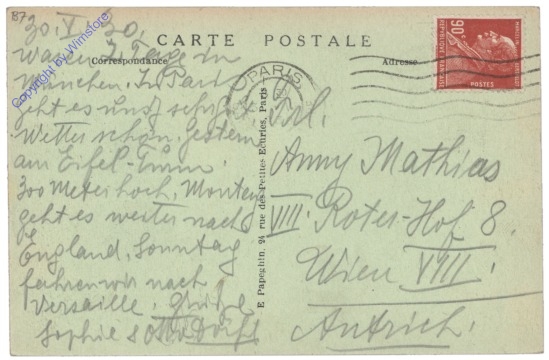 87
Copyright by Wimstore
CARTE POSTALE
Correspondance
Adresse
30. V. 30.
Waren 2 Tage in
München. In Paris
geht es uns sehr gut
Wetter schön. Gestern
am Eifel-Turm.
300 Meter hoch. Montag
geht es weiter nach
England. Sonntag
fahren wir nach
Versaille. Grüße
Sophie &
E Papeghin, 24 rue des Petites Ecuries, Paris
PARIS
90c
REPUBLIQUE FRANÇAISE
POSTES
Frl.
Anny Mathias
VIII. Rotes-Hof 8.
Wien VIII.
Autrich.